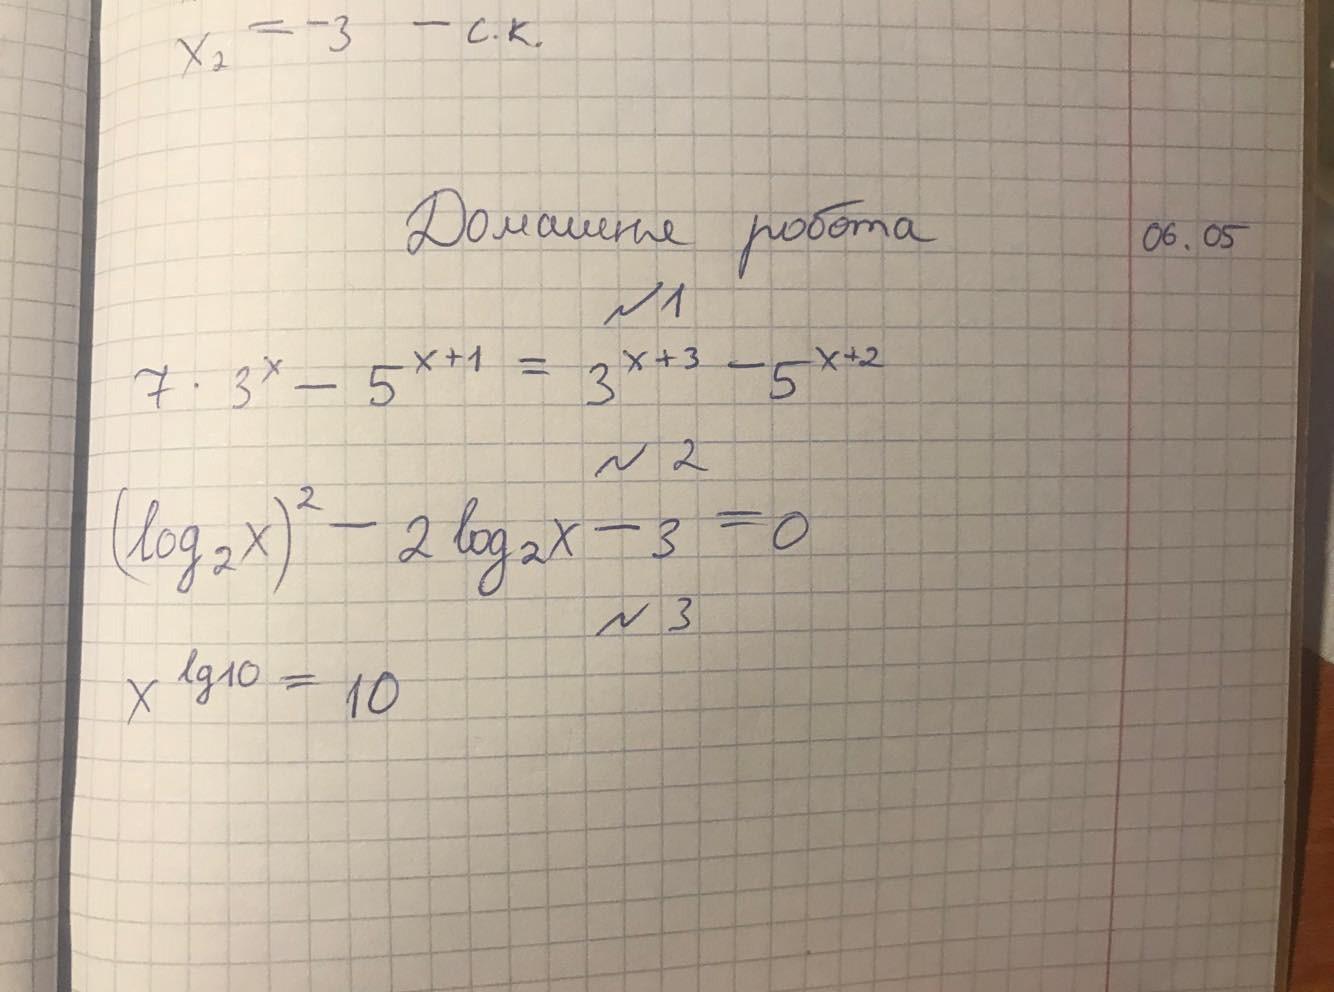 x₂ = -3 - с.к.
Домашнє робота 06.05
№1
7 · 3^x - 5^(x+1) = 3^(x+3) - 5^(x+2)
№ 2
(log₂x)² - 2 log₂x - 3 = 0
№ 3
x^(lg10) = 10